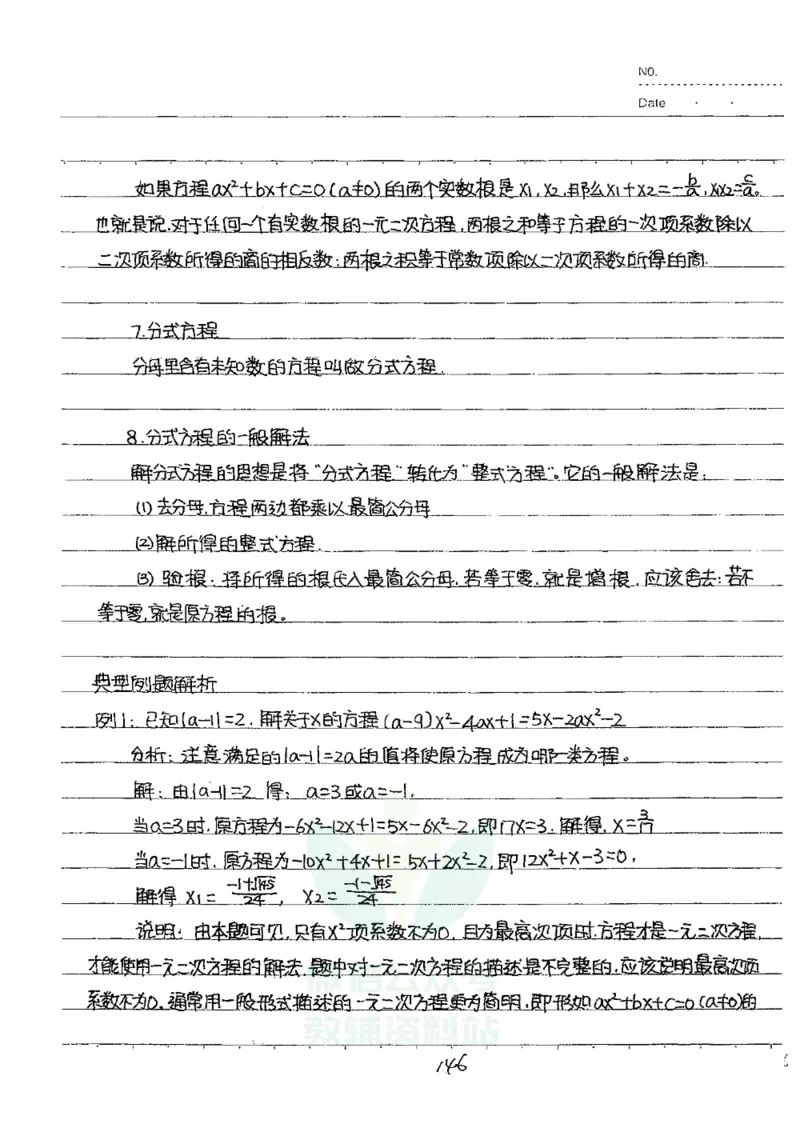 NO.
Date
如果方程ax²+bx+c=0(a≠0)的两个实数根是X₁,X₂,那么X₁+X₂=-b/a,X₁X₂=c/a。
也就是说,对于任何一个有实数根的一元二次方程,两根之和等于方程的一次项系数除以
二次项系数所得的商的相反数;两根之积等于常数项除以二次项系数所得的商.
7.分式方程
分母里含有未知数的方程叫做分式方程.
8.分式方程的一般解法
解分式方程的思想是将“分式方程”转化为“整式方程”。它的一般解法是:
(1)去分母,方程两边都乘以最简公分母
(2)解所得的整式方程.
(3) 验根:将所得的根代入最简公分母,若等于零,就是增根,应该舍去;若不
等于零,就是原方程的根。
典型例题解析
例1:已知|a-1|=2,解关于X的方程(a-9)X²-4ax+1=5X-2ax²-2
分析:注意满足的|a-1|=2a的值将使原方程成为哪一类方程。
解:由|a-1|=2 得: a=3或a=-1,
当a=3时,原方程为-6X²-12X+1=5X-6X²-2,即17X=3,解得,X=3/17
当a=-1时,原方程为-10X²+4X+1=5X+2X²-2,即12X²+X-3=0,
解得 X₁=(-1+√145)/24, X₂=(-1-√145)/24
说明:由本题可见,只有X²项系数不为0,且为最高次项时,方程才是一元二次方程,
才能使用一元二次方程的解法,题中对一元二次方程的描述是不完整的,应该说明最高次项
系数不为0。通常用一般形式描述的一元二次方程更为简明,即形如ax²+bx+c=0(a≠0)的
微信公众号
教辅资料站
146